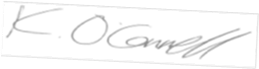 K. O'Connell